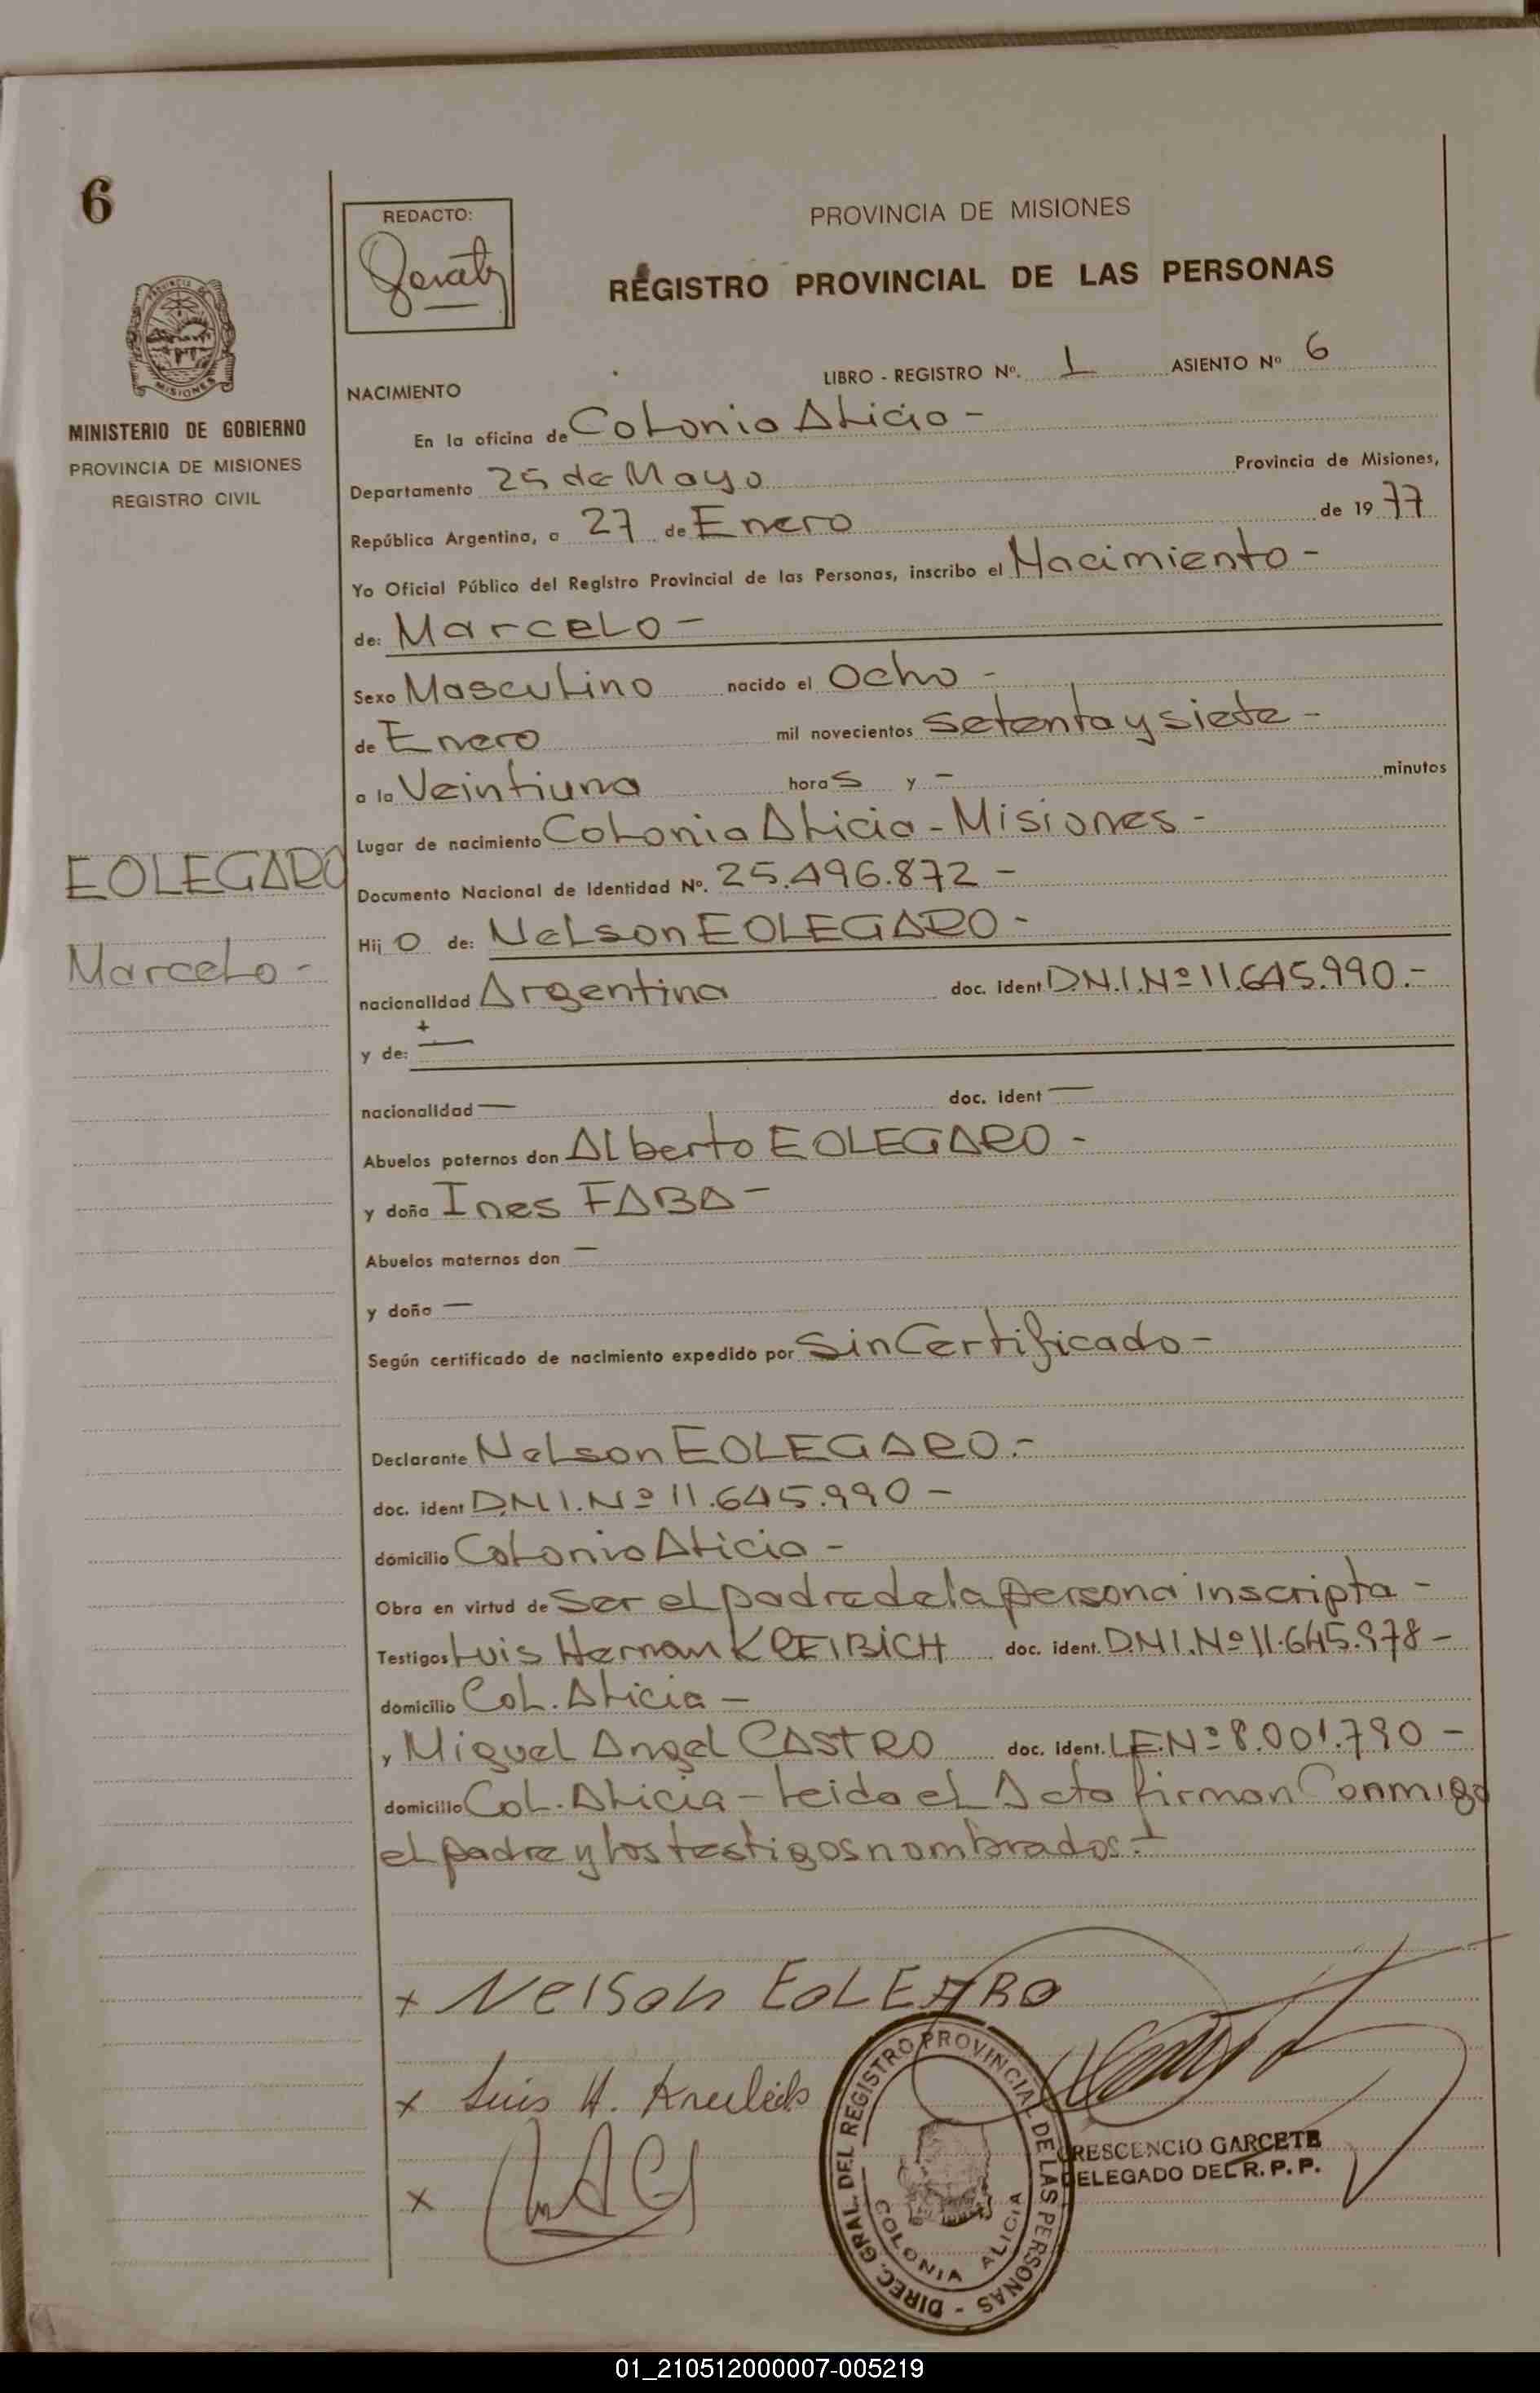 6
REDACTO:
PROVINCIA DE MISIONES
REGISTRO PROVINCIAL DE LAS PERSONAS
MISIONES
MINISTERIO DE GOBIERNO
PROVINCIA DE MISIONES
REGISTRO CIVIL
LIBRO - REGISTRO Nº. 1 ASIENTO Nº 6
NACIMIENTO
En la oficina de Colonia Alicia -
Departamento 25 de Mayo Provincia de Misiones,
República Argentina, a 27 de Enero de 1977
Yo Oficial Público del Registro Provincial de las Personas, inscribo el Nacimiento -
de: Marcelo -
Sexo Masculino nacido el Ocho -
de Enero mil novecientos Setenta y siete -
a la Veintiuna horas y - minutos
Lugar de nacimiento Colonia Alicia - Misiones -
EOLEGARO
Marcelo -
Documento Nacional de Identidad Nº. 25.496.872 -
Hijo de: Nelson EOLEGARO -
nacionalidad Argentina doc. ident D.N.I. Nº 11.645.990.-
y de: —
nacionalidad — doc. ident —
Abuelos paternos don Alberto EOLEGARO -
y doña Ines FABA -
Abuelos maternos don —
y doña —
Según certificado de nacimiento expedido por Sin Certificado -
Declarante Nelson EOLEGARO.-
doc. ident D.N.I. Nº 11.645.990 -
domicilio Colonia Alicia -
Obra en virtud de Ser el padre de la persona inscripta -
Testigos Luis Hernan KREIBICH doc. ident. D.N.I. Nº 11.645.978 -
domicilio Col. Alicia -
y Miguel Angel CASTRO doc. ident. L.E. Nº 8.001.790 -
domicilio Col. Alicia - leida el Acta firman Conmigo
el padre y los testigos nombrados.-
x Nelson EOLEARO
x Luis H.
x
DIREC. GRAL. DEL REGISTRO PROVINCIAL DE LAS PERSONAS -
COLONIA ALICIA
CRESCENCIO GARCETE
DELEGADO DEL R. P. P.
01_210512000007-005219